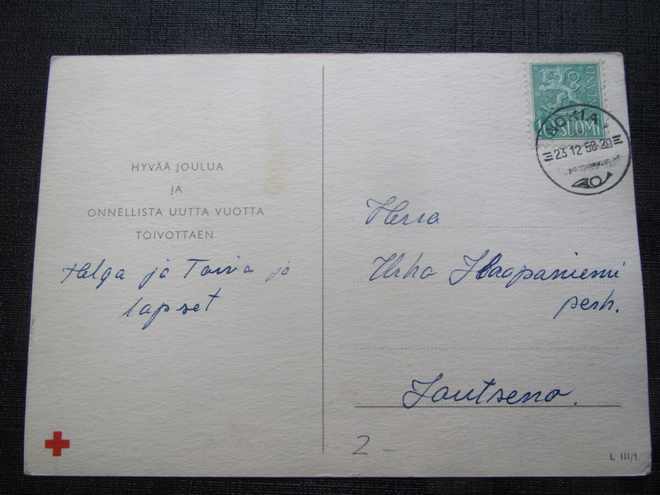 HYVÄÄ JOULUA
JA
ONNELLISTA UUTTA VUOTTA
TOIVOTTAEN
Helga ja Toivo ja
lapset
10 SUOMI
NOKIA
23.12.58-20
Herra
Urho Haapaniemi
perh.
Joutseno.
2-
L III/1